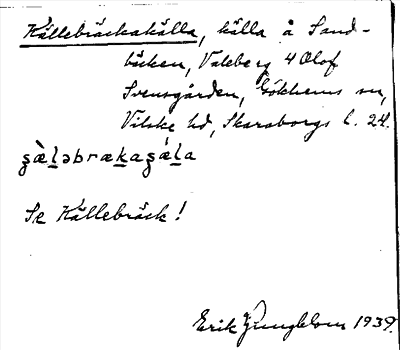 Källebräckakälla, källa å Sand-
bäcken, Valeberg 4 Olof
Svensgården, Gökhems sn,
Vilske hd, Skaraborgs l. 24.
s̨æ̀ḻəbrækas̨ǽḻa
Se Källebräck!
Erik Ljungblom 1939.